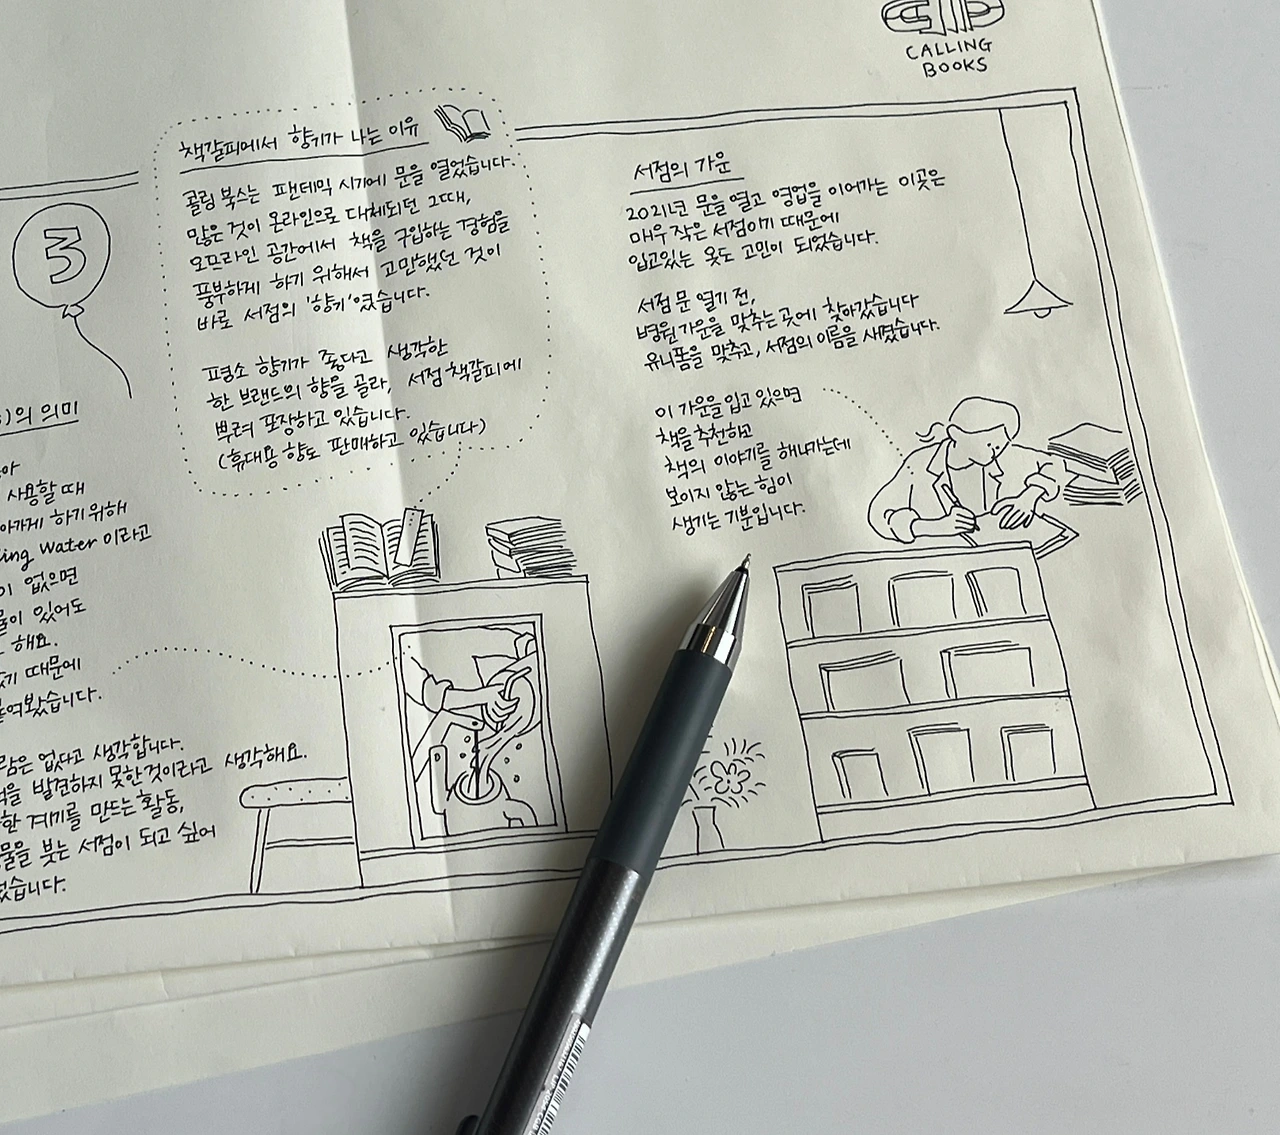 CALLING
BOOKS
책갈피에서 향기가 나는 이유
콜링 북스는 팬데믹 시기에 문을 열었습니다.
많은 것이 온라인으로 대체되던 그때,
오프라인 공간에서 책을 구입하는 경험을
풍부하게 하기 위해서 고민했던 것이
바로 서점의 '향기'였습니다.
평소 향기가 좋다고 생각한
한 브랜드의 향을 골라, 서점 책갈피에
뿌려 포장하고 있습니다.
(휴대용 향도 판매하고 있습니다)
서점의 가운
2021년 문을 열고 영업을 이어가는 이곳은
매우 작은 서점이기 때문에
입고있는 옷도 고민이 되었습니다.
서점 문 열기 전,
병원 가운을 맞추는 곳에 찾아갔습니다
유니폼을 맞추고, 서점의 이름을 새겼습니다.
이 가운을 입고 있으면
책을 추천하고
책의 이야기를 해나가는데
보이지 않는 힘이
생기는 기분입니다.
3
)의 의미
사용할 때
하기 위해
ing Water 이라고
없으면
있어도
해요.
때문에
없다고 생각합니다.
발견하지 못한 것이라고 생각해요.
계기를 만드는 활동,
붓는 서점이 되고 싶어